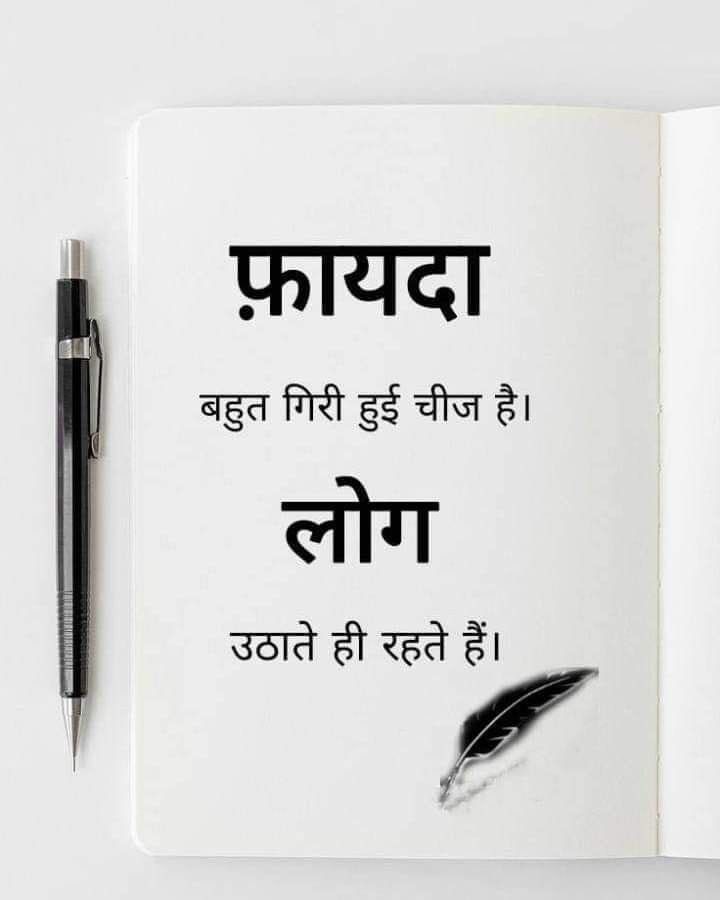 फ़ायदा
बहुत गिरी हुई चीज है।
लोग
उठाते ही रहते हैं।